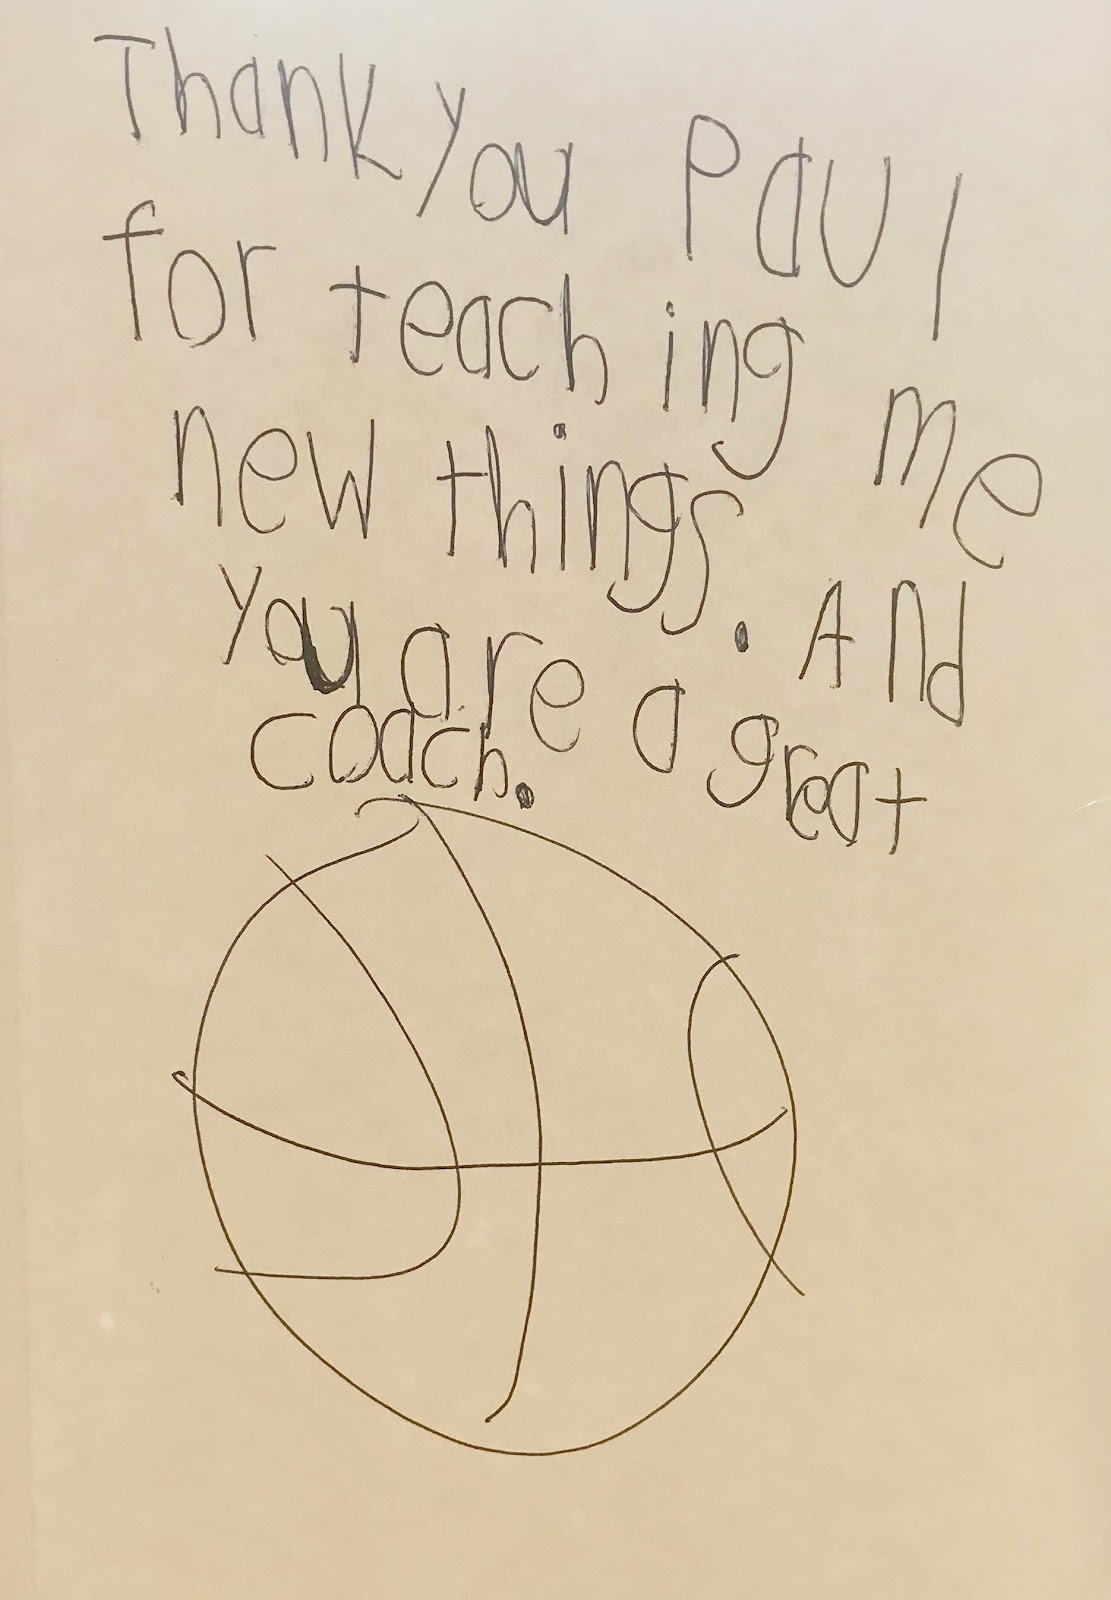 Thank you Paul
for teaching me
new things. And
you are a great
coach.